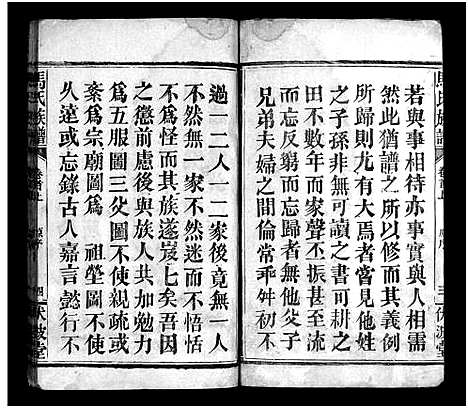 若與事相待亦事實與人相需
然此猶譜之所以修而其義例
所歸則尤有大焉者嘗見他姓
之子孫非無可讀之書可耕之
田數年而家聲丕振甚至流
而忘反竊而忘歸詬誶之聲達
兄弟夫婦之間倫常乖舛初不
過一二人一二家後竟無一人
不然無一家不然迷而不悟恬
不為怪而其族遂岌岌七矣吾因
之懲前慮後與族人共加勉力
為五服圖三父圖不使親疏或
紊為宗廟圖為 祖塋圖不使
久遠或忘錄古人嘉言懿行不
馬氏族譜
卷首上
原序
四
伏波堂
馬氏族譜
卷首上
原序
三
伏波堂